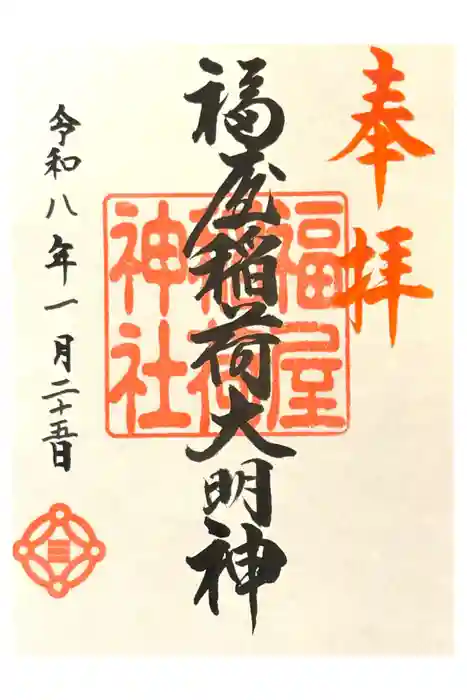 奉拝
福屋稲荷大明神
福屋稲荷神社
令和八年一月二十五日